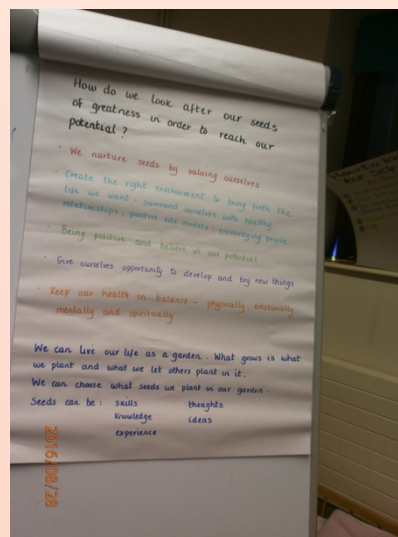 How do we look after our seeds
of greatness in order to reach our
potential?
· We nurture seeds by valuing ourselves
· Create the right environment to bring forth the
life we want - surround ourselves with healthy
relationships, positive role models, encouraging people
· Being positive and believe in our potential
· Give ourselves opportunity to develop and try new things
· Keep our health in balance - physically, emotionally
mentally and spiritually
We can live our life as a garden. What grows is what
we plant and what we let others plant in it.
We can choose what seeds we plant in our garden.
Seeds can be: skills thoughts
knowledge ideas
experience
2016/08/28
How to
Your Se